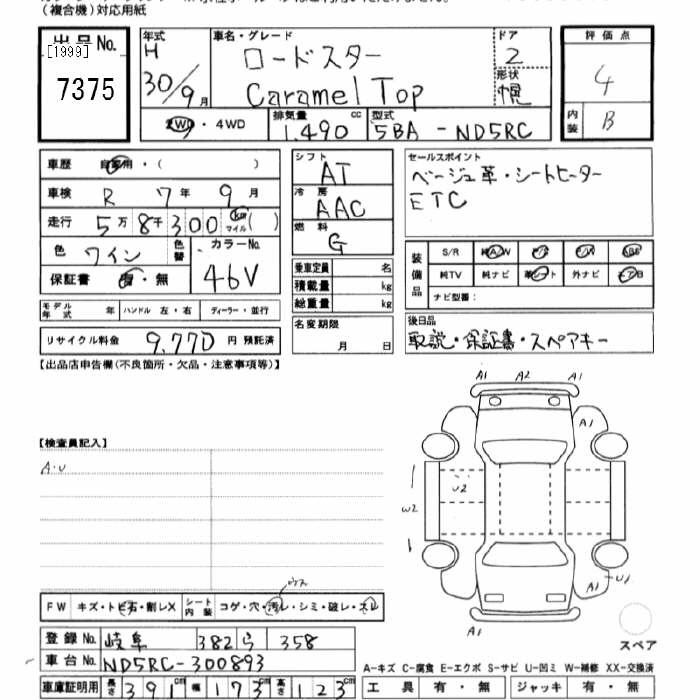 (複合機)対応用紙
出品No.
[1999]
7375
年式 H 30/9月
車名・グレード ロードスター Caramel Top
ドア 2
形状 幌
2WD・4WD
排気量 1,490 cc
型式 5BA-ND5RC
評価点 4
内装 B
車歴 自家用・( )
車検 R 7年 9月
走行 5万8千300 km マイル ( )
色 ワイン 色替
カラーNo. 46V
保証書 有・無
モデル年式 年 ハンドル 左・右 ディーラー・並行
リサイクル料金 9,770 円 預託済
シフト AT
冷房 AAC
燃料 G
乗車定員 名
積載量 kg
総重量 kg
名変期限 月 日
セールスポイント
ベージュ革・シートヒーター
ETC
装備品 S/R 純A/W P/S P/W ABS
純TV 純ナビ 革シート 外ナビ エアB
ナビ型番:
後日品
取説・保証書・スペアキー
【出品店申告欄(不良箇所・欠品・注意事項等)】
【検査員記入】
A・U
A1 A2 A1
A1
U2
W2
A1 U1
A1
スペア
FW キズ・トビ石・割レX シート内装 コゲ・穴・汚レ・シミ・破レ・スレ
登録No. 岐阜 382 ら 358
車台No. ND5RC-300893
車庫証明用 長さ 391cm 幅 173cm 高さ 123cm
A-キズ C-腐食 E-エクボ S-サビ U-凹ミ W-補修 XX-交換済
工具 有・無 ジャッキ 有・無